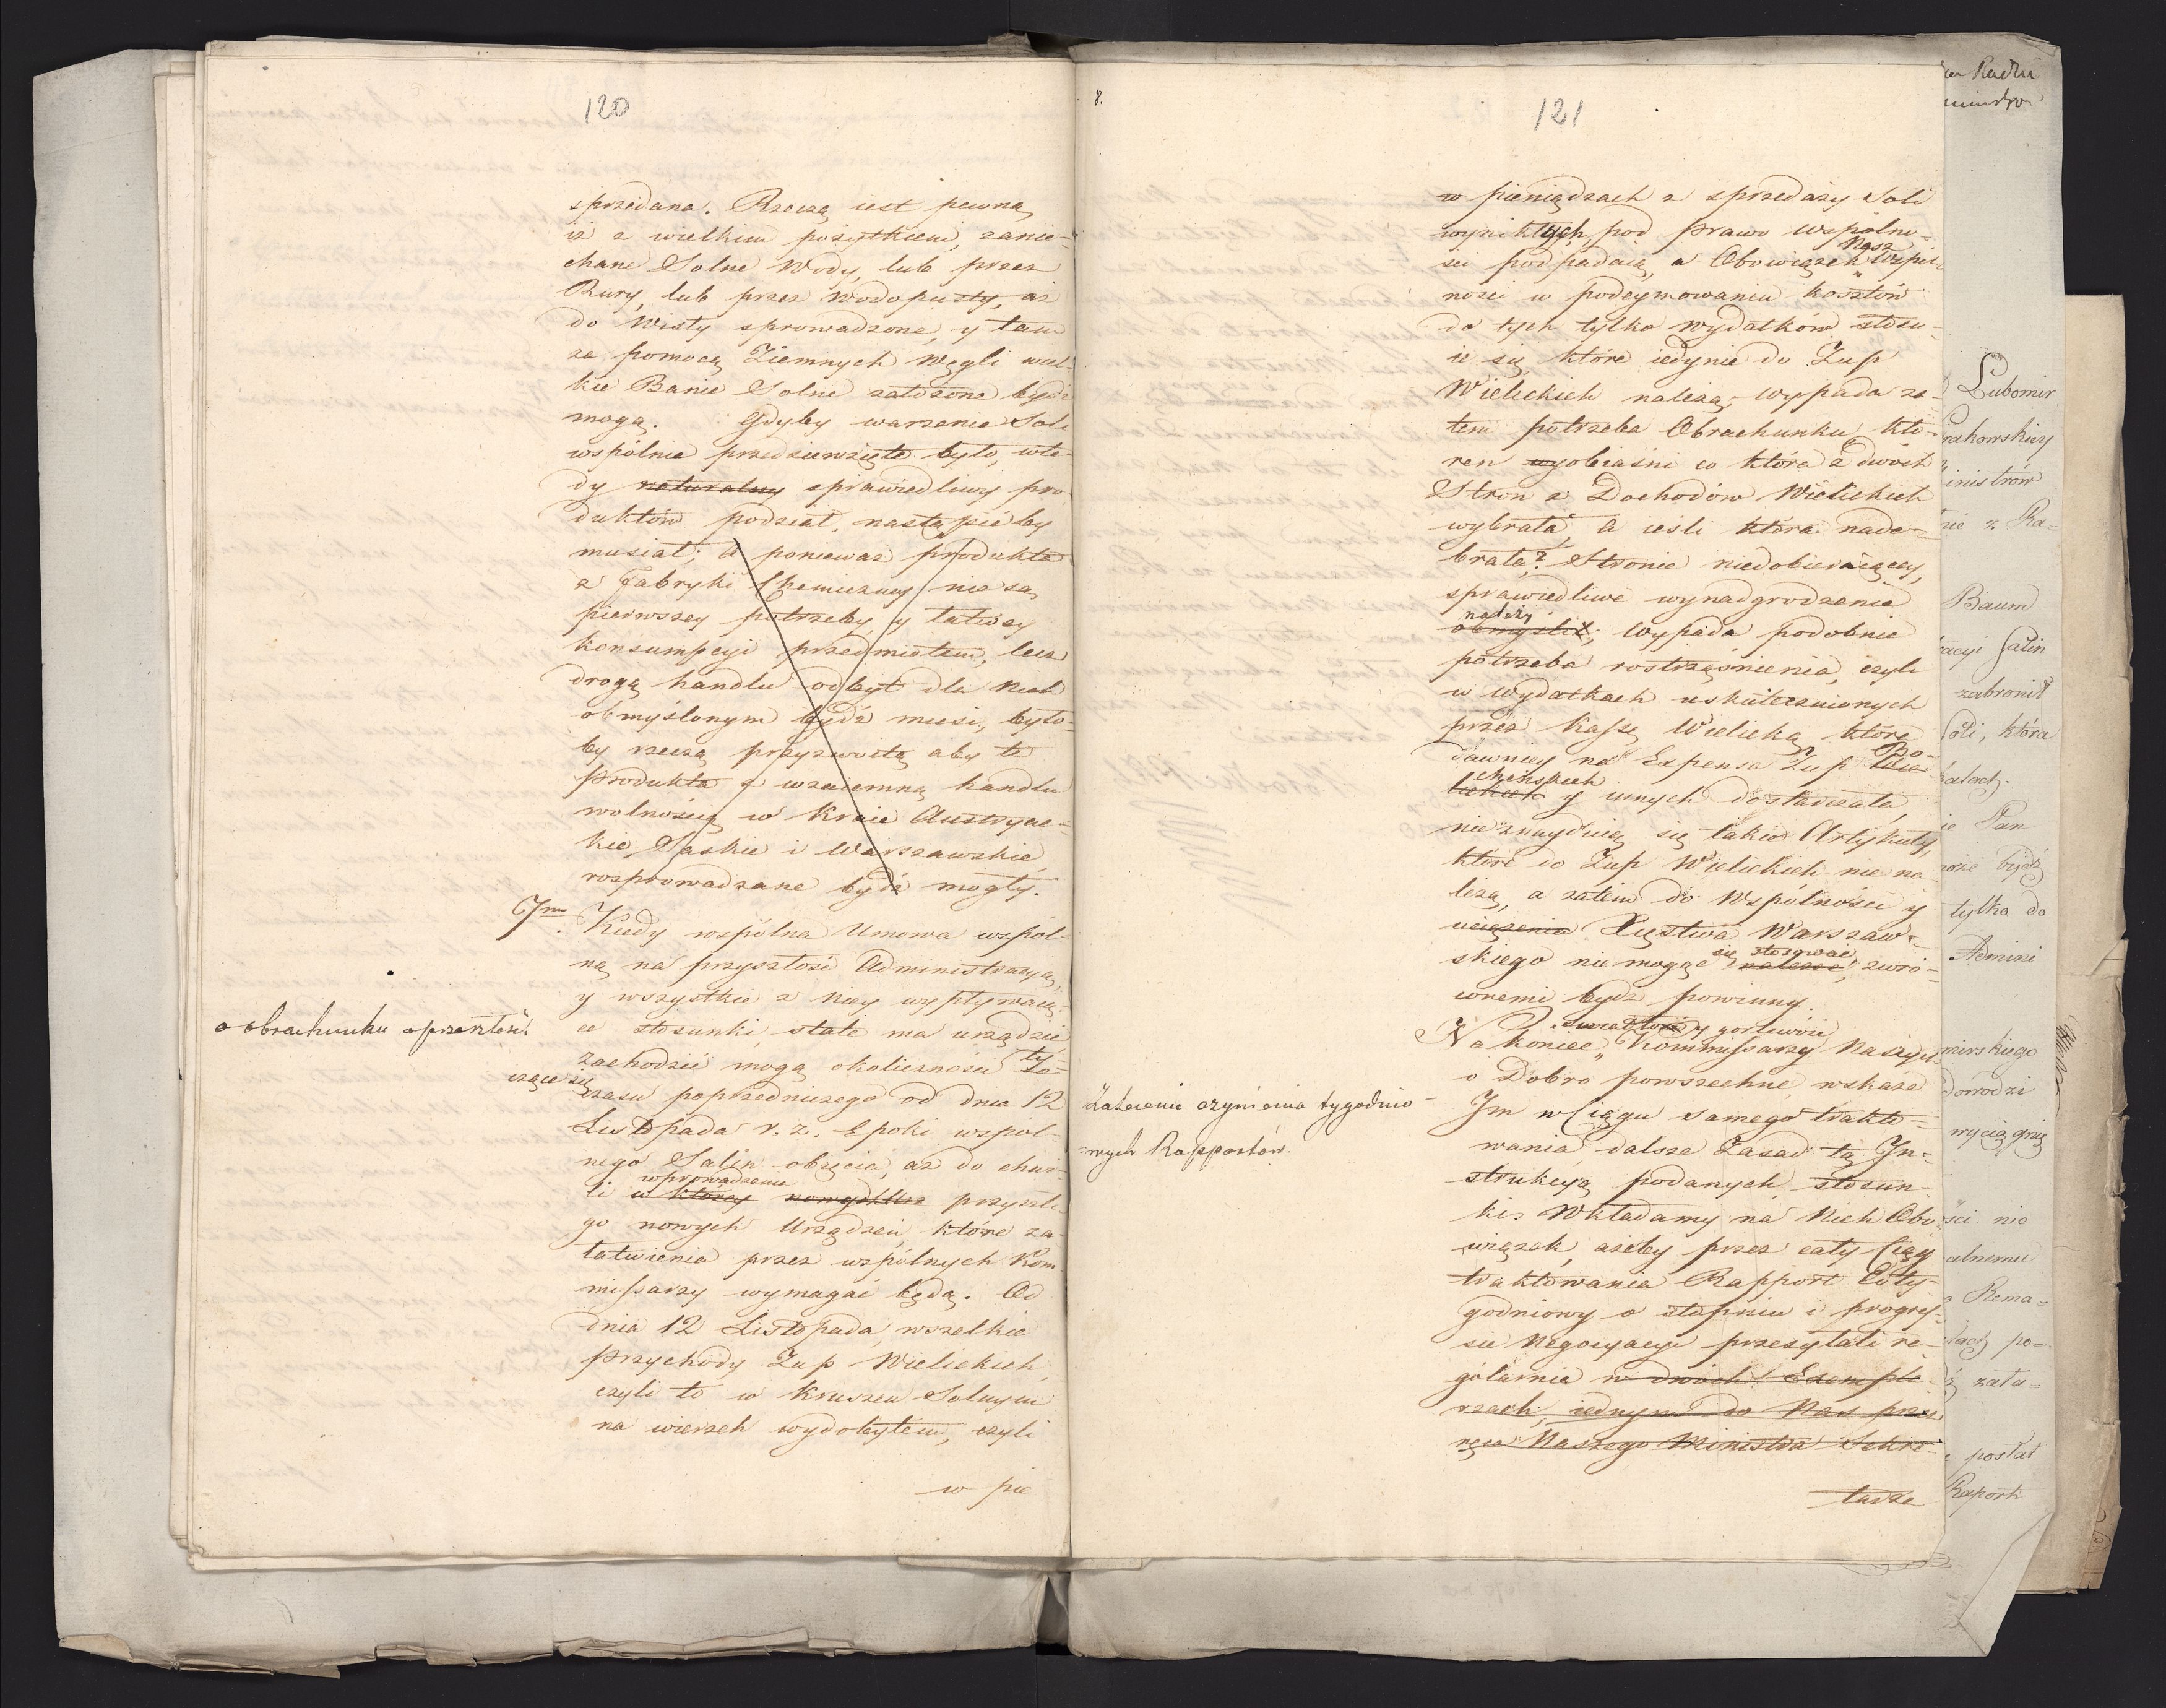 120
sprzedana. Rzeczą iest pewną
iż z wielkim pożytkiem, zanie-
chane Solne Wody, lub przez
Rury, lub przez Wodopusty, aż
do Wisły sprowadzone, y tam
za pomocą Ziemnych Węgli wiel-
kie Banie Solne założone bydź
mogą. Gdyby warzenie Soli
wspólnie przedsiewzięte było, wte-
dy naturalny sprawiedliwy pro-
duktów podział, nastąpićby
musiał; A ponieważ produkta
z Fabryki Chemiczney nie są
pierwszey potrzeby, y łatwey
konsumpcyi przedmiotem, lecz
drogą handlu odbyt dla nich
obmyślonym bydź musi, było-
by rzeczą przyzwoitą aby te
Produkta z wzaiemną handlu
wolnością w Kraie Austryac-
kie, Saskie i Warszawskie,
rozprowadzane bydź mogły.
7mo. Kiedy wspólna Umowa wspól-
ną na przyszłość Administracyą,
y wszystkie z niey wypływaią-
ce stosunki, stale ma urządzić
o obrachunku z przeszłości.
zachodzić mogą okoliczności ty-
czące się
czasu poprzedniczego od dnia 12
Listopada r. z. Epoki wspól-
nego Salin obięcia, aż do chwi-
wprowadzenia
li w którey nowych przyszłe
go nowych Urządzeń, które za-
łatwienia przez wspólnych Kom
missarzy wymagać będą. Od
dnia 12 Listopada, wszelkie
Przychody Żup Wielickich,
czyli to w Kruszcu Solnym
na wierzch wydobytem, czyli
w pie
8.
121
w pieniądzach z sprzedaży Soli
wynikłych, pod prawo wspólno-
Nasz
ści podpadaią, a Obowiązek Wspól-
ności w podeymowaniu kosztów
do tych tylko wydatków stosu-
ie się, które iedynie do Żup
Wielickich należą; wypada za-
tem potrzeba Obrachunku, któ-
ren wyobiaśni co która z dwóch
Stron z Dochodów Wielickich
wybrała, a ieśli która nade-
brała? Stronie niedobieraiącey,
sprawiedliwe wynadgrodzenie
należy
obmyślić; Wypada podobnie
potrzeba roztrząśnienia, czyli
w Wydatkach uskutecznionych
przez Kassę Wielicką, które
dawniey na Expensa Żup Bo-
cheńskich
y innych dostarczała,
nieznaydują się takie Artykuły,
które do Żup Wielickich nie na
leżą, a zatem do Wspólności y
uciążenia Xięstwa Warszaw-
się stosować
skiego nie mogąc należeć, zwró-
conemi bydź powinny.
światłość y gorliwość
Na koniec, Kommissarzy Naszych
o Dobro powszechne, wskaże
Im w Ciągu samego trakto-
Zalecenie czynienia tygodnio-
wych Rapportów.
wania, dalsze Zasad tą In-
strukcyą podanych stosun-
ki. Wkładamy na Nich Obo-
wiązek, ażeby przez cały Ciąg
traktowania Rapport Coty-
godniowy o stopniu i progres-
sie Negocyacyi przesyłali re-
gólarnie w dwóch Exempla-
rzach, iednym do Nas przez
ręce Naszego Ministra Sekre-
tarza
Radzi
Lubomir
rakowskiey
inistrów
nie z Ra-
Baum
racyi Salin
zabronił
soli, która
Pan
może bydź
tylko do
Admini
mierskiego
dowodzi
wyciągnię
ści nie
alnemu
Rema-
po-
zała-
posłał
Raporta